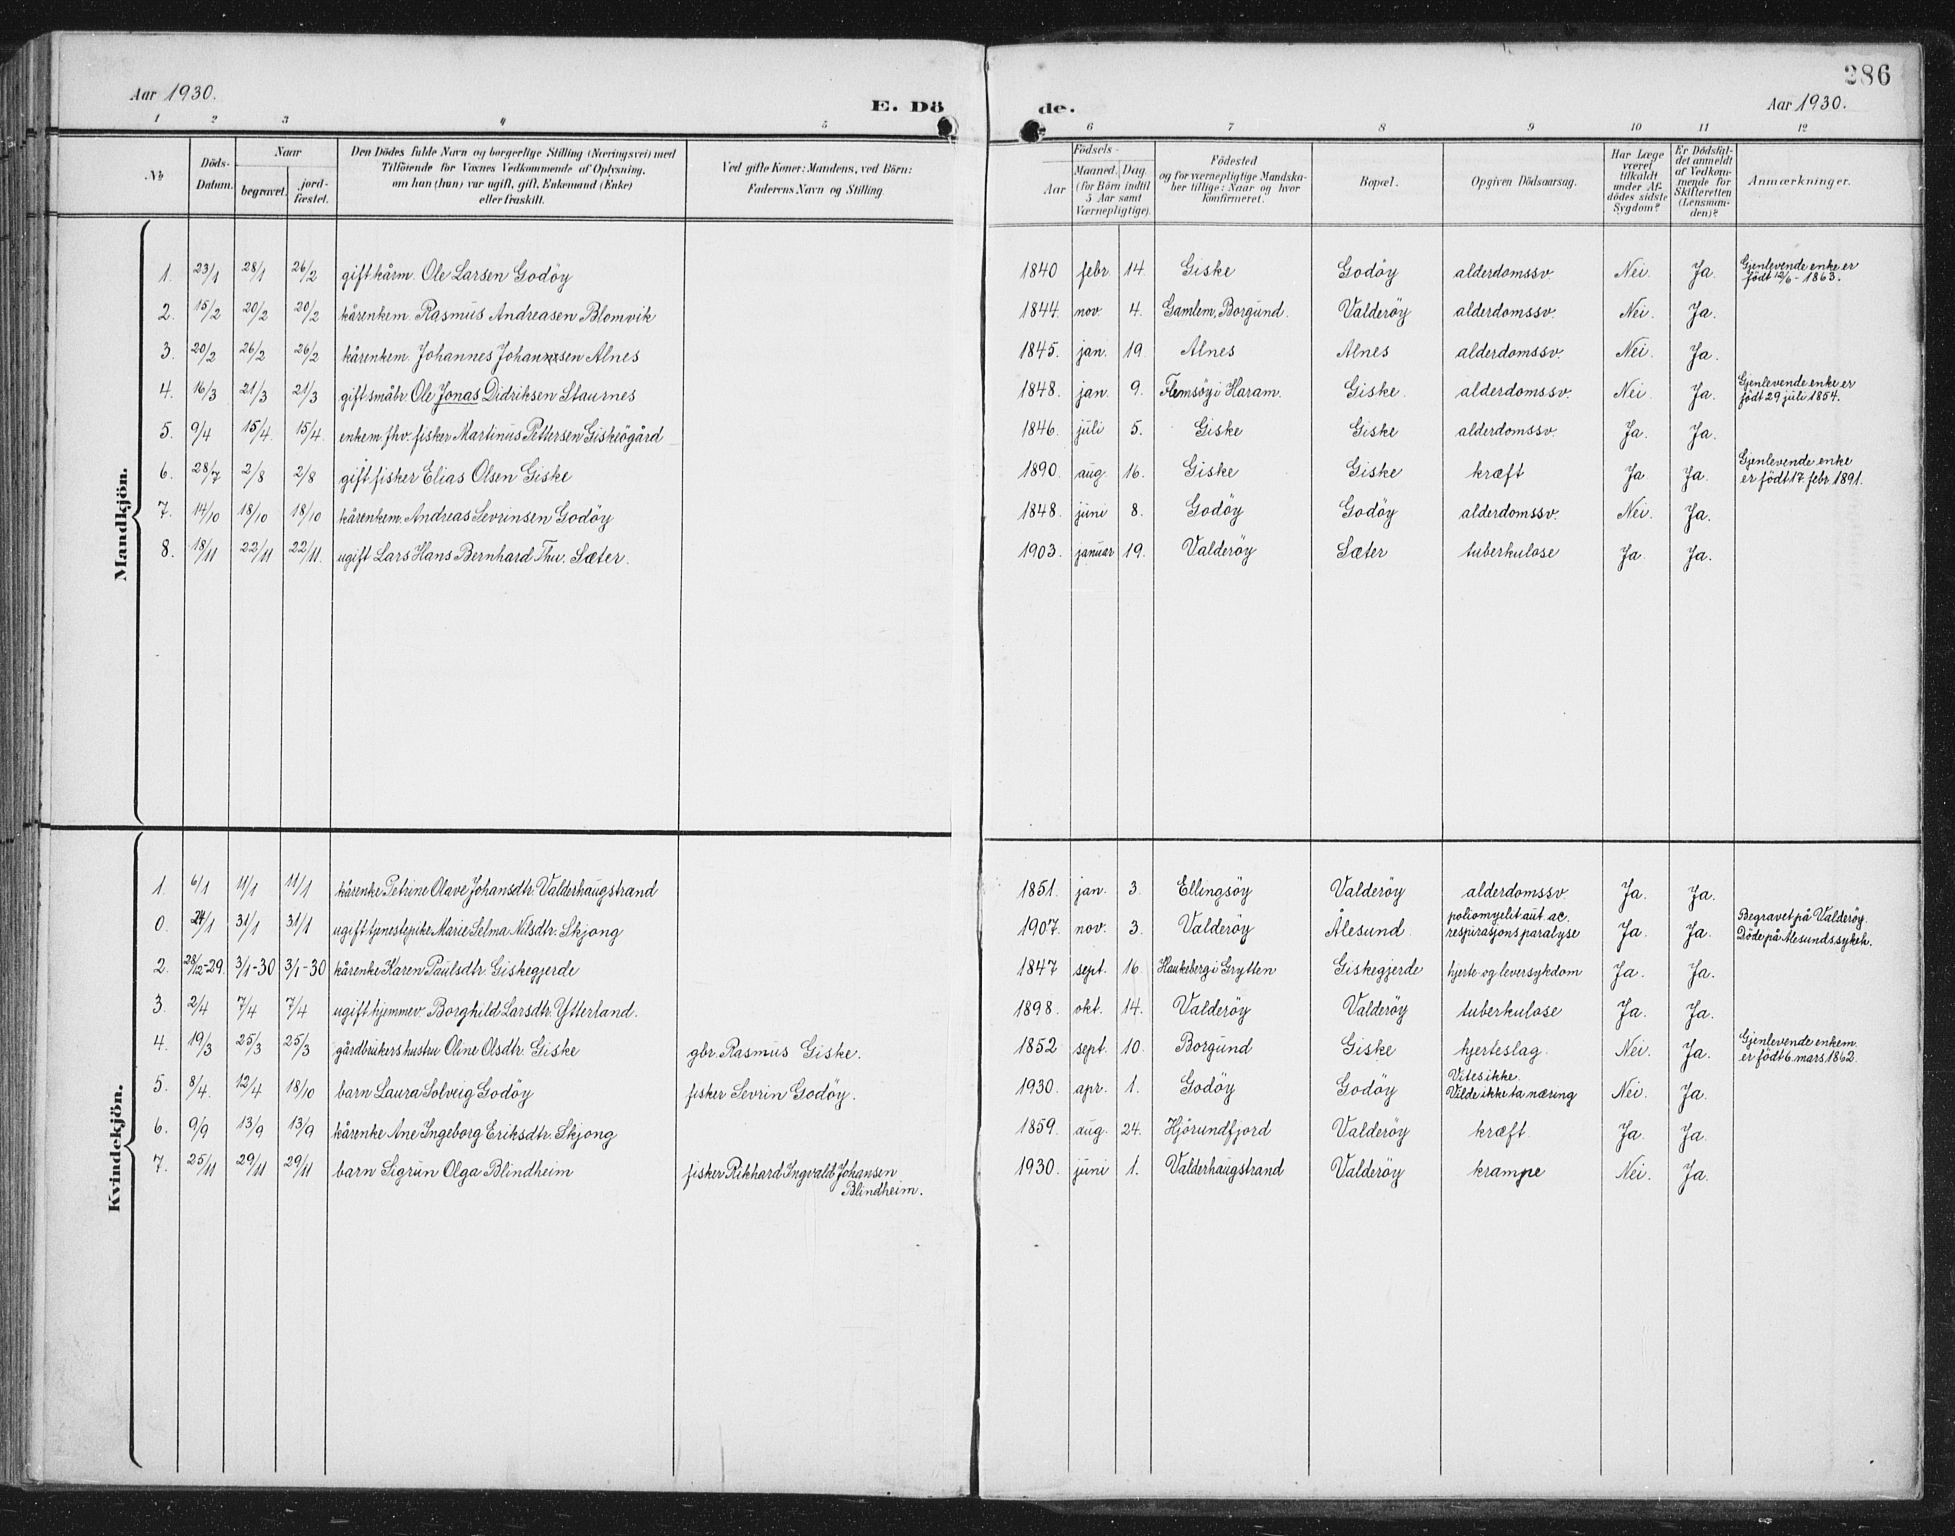 286
Aar 1930.
E. Dö
de.
Aar 1930.
1 2 3 4 5 6 7 8 9 10 11 12
No
Döds-
Datum.
Naar
begravet.
jord-
fæstet.
Den Dödes fulde Navn og borgerlige Stilling (Næringsvei) med
Tilföiende for Voxnes Vedkommende af Oplysning,
om han (hun) var ugift, gift, Enkemand (Enke)
eller fraskilt.
Ved gifte Koner: Mandens, ved Börn:
Faderens Navn og Stilling.
Födsels-
Aar
Maaned.
(for Börn indtil
5 Aar samt
Værnepligtige).
Dag
Födested
og for værnepligtige Mandska-
ber tillige: Naar og hvor
konfirmeret.
Bopæl.
Opgiven Dödsaarsag.
Har Læge
været
tilkaldt
under Af-
dödes sidste
Sygdom?
Er Dödsfal-
det anmeldt
af Vedkom-
mende for
Skifteretten
(Lensman-
den)?
Anmærkninger.
Mandkjön.
1. 23/1 28/1 26/2 gift kårm. Ole Larsen Godöy 1840 febr. 14. Giske Godöy alderdomssv. Nei. Ja. Gjenlevende enke er
födt 12/6-1863.
2. 15/2 20/2 20/2 kårenkem. Rasmus Andreasen Blomvik 1844. nov 4. Gamlem, Borgund. Valderöy alderdomssv. Nei. Ja.
3. 20/2 26/2 26/2 kårenkem. Johannes Johansen Alnes 1845. jan. 19. Alnes Alnes alderdomssv. Nei. Ja.
4. 16/3 21/3 21/3 gift småbr. Ole Jonas Didriksen Staurnes 1848. jan. 9. Flemsöy i Haram. Giske. alderdomssv. Nei. Ja. Gjenlevende enke er
födt 29 juli 1854.
5. 9/4 15/4. 15/4. enkem. fhv. fisker Martinus Pettersen Giskeögård 1846. juli 5. Giske Giske alderdomssv. Ja. Ja.
6. 28/7 2/8 2/8 gift fisker Elias Olsen Giske 1890. aug. 16. Giske Giske kræft Ja Ja. Gjenlevende enke
er födt 17. febr. 1891.
7. 14/10 18/10 18/10 kårenkem. Andreas Sevrinsen Godöy 1848. juni 8. Godöy Godöy alderdomssv. Nei. Ja.
8. 18/11 22/11 22/11. ugift Lars Hans Bernhard Thv. Sæter. 1903. januar 19. Valderöy Sæter tuberkulose Ja. Ja.
Kvindekjön.
1. 6/1 11/1 11/1 kårenke Petrine Olave Johansdtr. Valderhaugstrand 1851. jan. 3. Ellingsöy Valderöy alderdomssv. Ja. Ja.
0. 24/1 31/1 31/1 ugift tjenestepike Marie Selma Nilsdtr. Skjong 1907. nov. 3. Valderöy Ålesund. poliomyelit aut. ac.
respirasjonsparalyse Ja. Ja. Begravet på Valderöy.
Döde på Ålesunds sykeh.
2. 28/12-29. 3/1-30 3/1-30 kårenke Karen Paulsdtr. Giskegjerde 1847 sept. 16. Haukeberg i Grytten Giskegjerde hjerte og leversykdom Ja. Ja.
3. 2/4 7/4 7/4 ugift hjemmev. Borghild Larsdtr. Ytterland. 1898. okt. 14. Valderöy Valderöy tuberkulose Ja. Ja.
4. 19/3 25/3 25/3 gårdbrukers hustru Oline Olsdtr. Giske gbr. Rasmus Giske. 1852 sept. 10. Borgund Giske hjerteslag. Nei. Ja. Gjenlevende enkem.
er födt 6. mars 1862.
5. 8/4. 12/4 18/10 barn Laura Solveig Godöy fisker Sevrin Godöy. 1930. apr. 1. Godöy Godöy Vites ikke.
Vilde ikke ta næring Nei. Ja.
6. 9/9 13/9 13/9 kårenke Ane Ingeborg Eriksdtr. Skjong 1859. aug. 24. Hjörundfjord Valderöy kræft. Ja. Ja.
7. 25/11 29/11 29/11 barn Sigrun Olga Blindheim fisker Rikhard Ingvald Johansen
Blindheim. 1930. juni 1. Valderhaugstrand Valderöy krampe Nei. Ja.